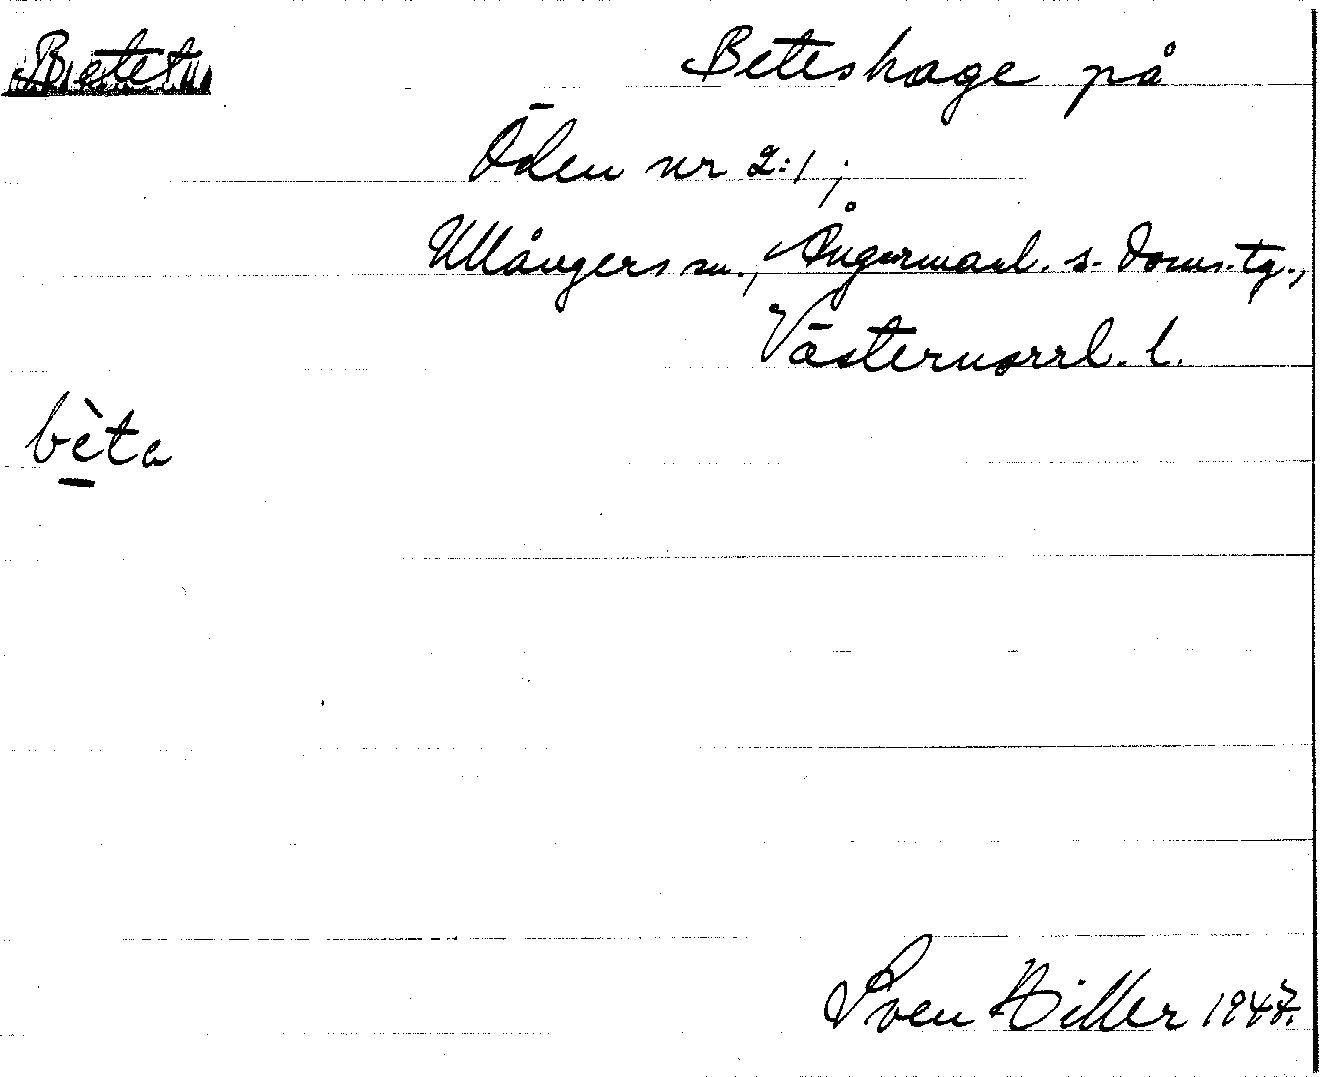 Betet
Beteshage på
Öden nr 2:1;
Ullångers sn., Ångermanl. s. doms. tg.,
Västernorrl. l.
bèta
Sven Hiller 1947.